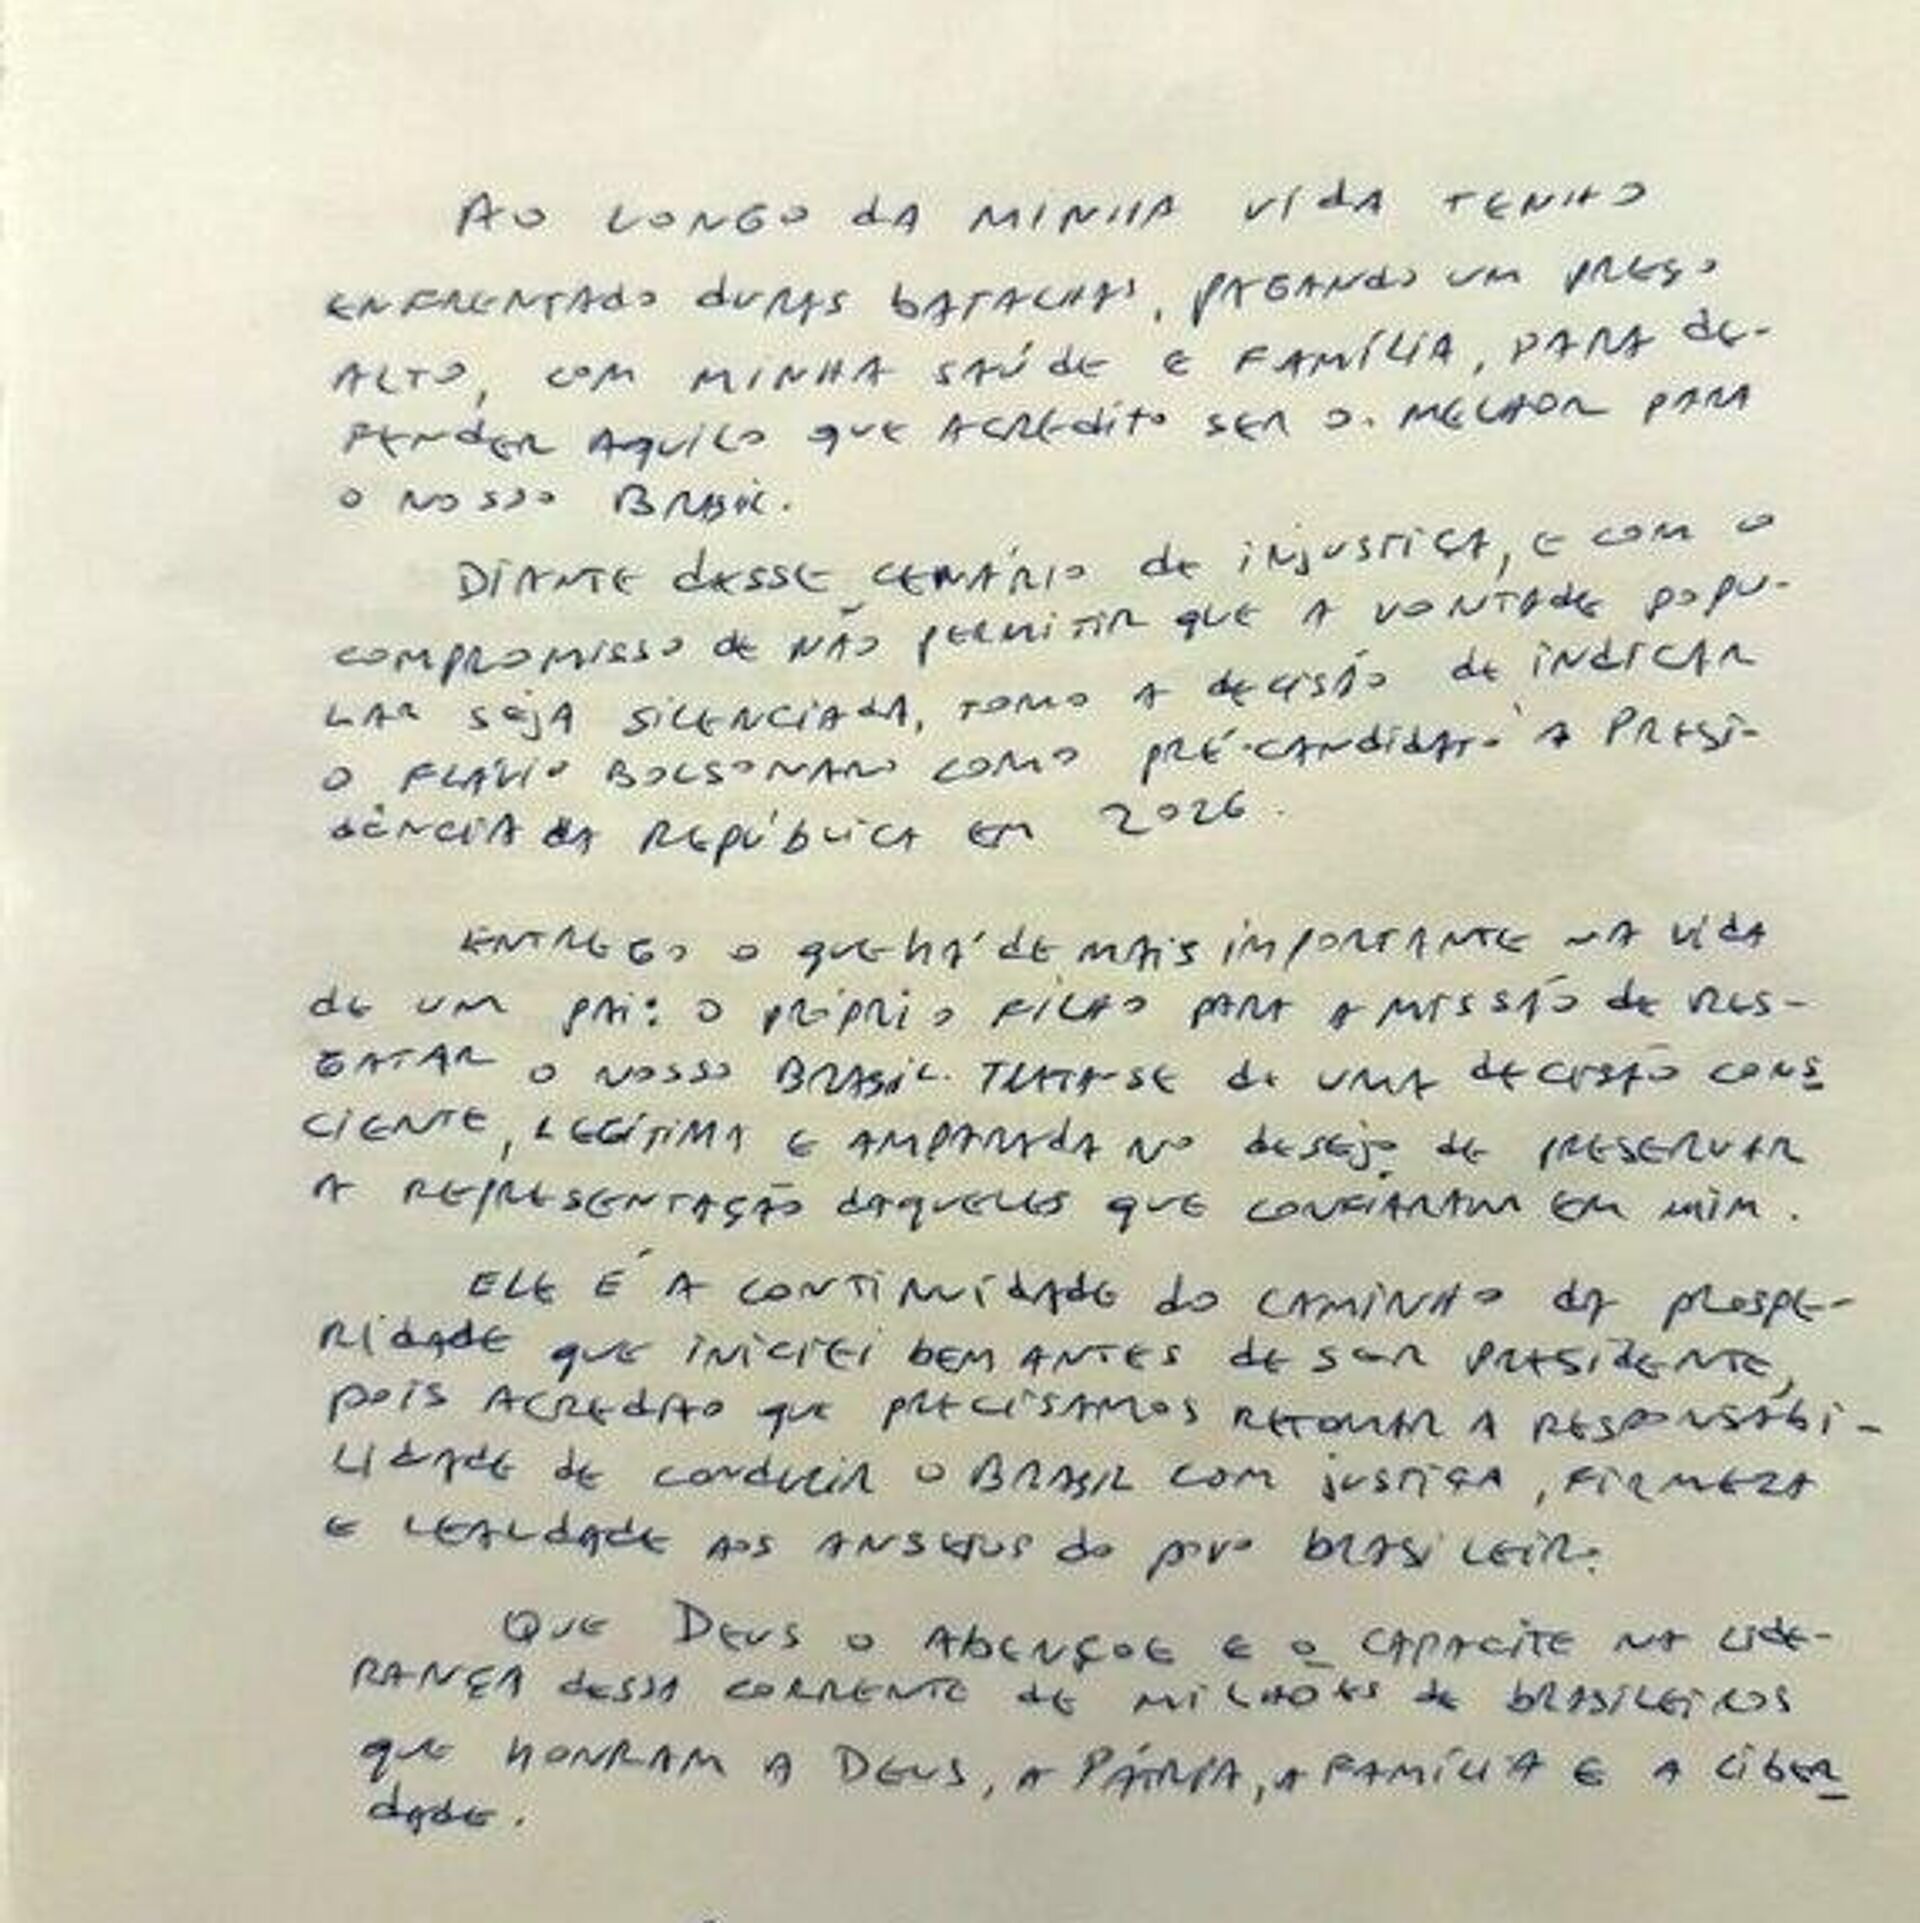 AO LONGO DA MINHA VIDA TENHO
ENFRENTADO DURAS BATALHAS, PAGANDO UM PREÇO
ALTO, COM MINHA SAÚDE E FAMÍLIA, PARA DE-
FENDER AQUILO QUE ACREDITO SER O. MELHOR PARA
O NOSSO BRASIL.
DIANTE DESSE CENÁRIO DE INJUSTIÇA, E COM O
COMPROMISSO DE NÃO PERMITIR QUE A VONTADE POPU-
LAR SEJA SILENCIADA, TOMO A DECISÃO DE INDICAR
O FLÁVIO BOLSONARO COMO PRÉ-CANDIDATO À PRESI-
DÊNCIA DA REPÚBLICA EM 2026.
ENTREGO O QUE HÁ DE MAIS IMPORTANTE NA VIDA
DE UM PAI: O PRÓPRIO FILHO PARA A MISSÃO DE RES-
GATAR O NOSSO BRASIL. TRATA-SE DE UMA DECISÃO CONS
CIENTE, LEGÍTIMA E AMPARADA NO DESEJO DE PRESERVAR
A REPRESENTAÇÃO DAQUELES QUE CONFIARAM EM MIM.
ELE É A CONTINUIDADE DO CAMINHO DA PROSPE-
RIDADE QUE INICIEI BEM ANTES DE SER PRESIDENTE,
POIS ACREDITO QUE PRECISAMOS RETOMAR A RESPONSABI-
LIDADE DE CONDUZIR O BRASIL COM JUSTIÇA, FIRMEZA
E LEALDADE AOS ANSEIOS DO POVO BRASILEIRO.
QUE DEUS O ABENÇOE E O CAPACITE NA LIDE-
RANÇA DESSA CORRENTE DE MILHÕES DE BRASILEIROS
QUE HONRAM A DEUS, A PÁTRIA, A FAMÍLIA E A LIBER
DADE.